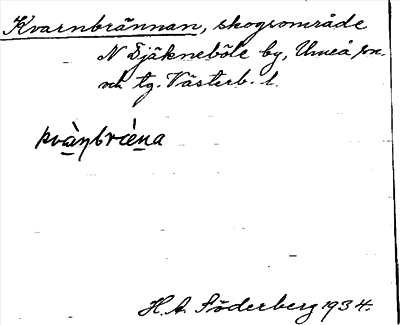 Kvarnbrännan, skogsområde
N Djäkneböle by, Umeå sn.
och tg. Västerb. l.
kvàṇbrèna
H. A. Söderberg 1934.